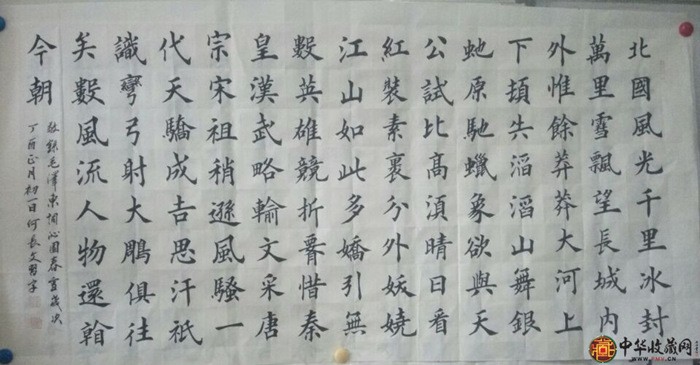 北國風光千里冰封
萬里雪飄望長城内
外惟餘莽莽大河上
下頓失滔滔山舞銀
虵原馳蠟象欲與天
公試比髙湏晴日看
紅裝素裹分外妖嬈
江山如此多嬌引無
數英雄競折惜秦
皇漢武略輸文采唐
宗宋祖稍遜風騷一
代天驕成吉思汗祇
識彎弓射大鵰俱往
矣數風流人物還
今朝
敬録毛澤東詞沁園春雪歲次
丁酉正月初一日何長文習字
藏 中华收藏网